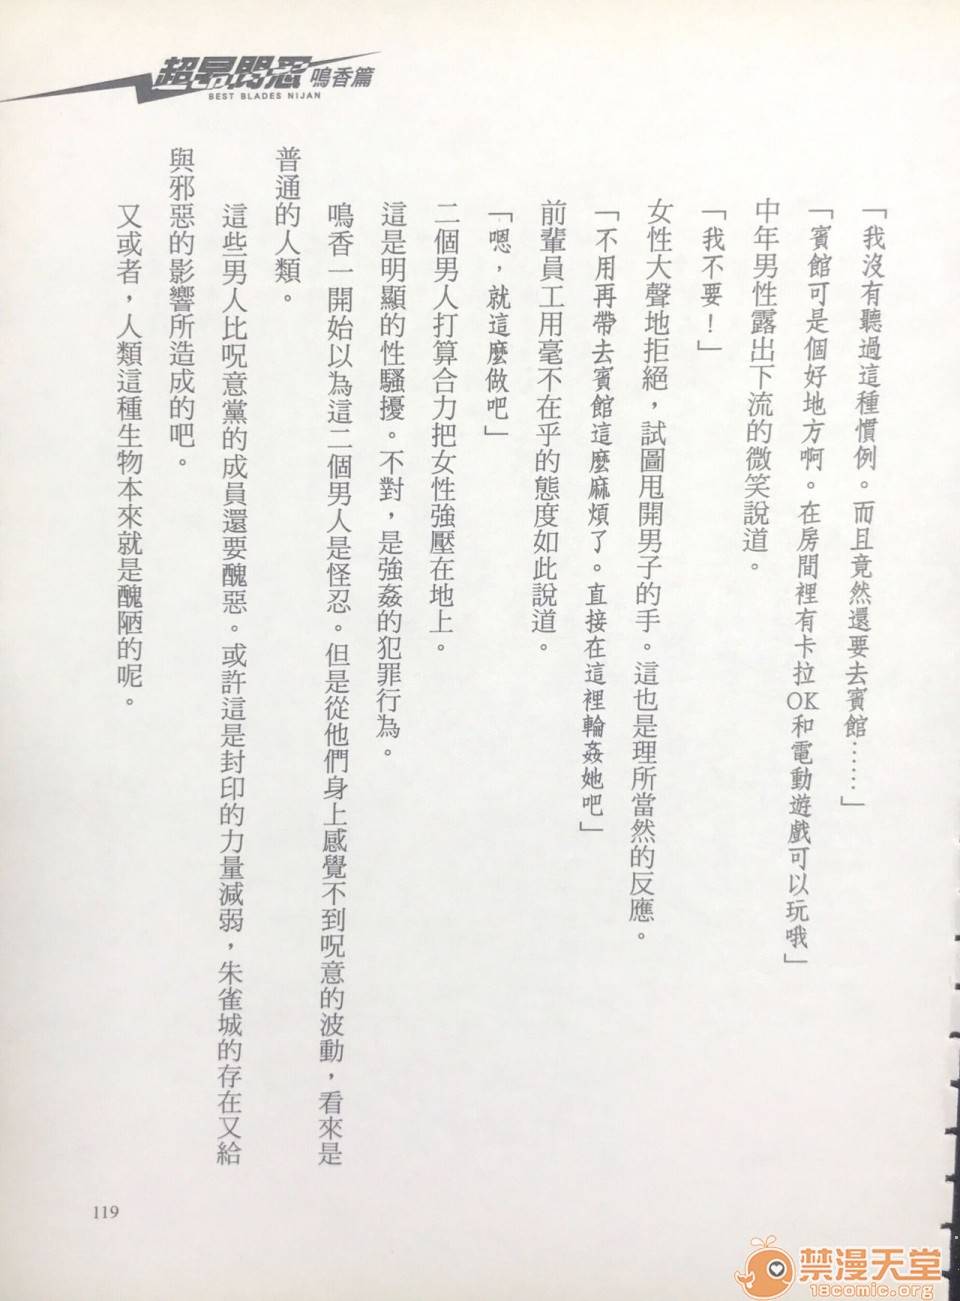 超昂閃忍 鳴香篇
BEST BLADES NIJAN
「我沒有聽過這種慣例。而且竟然還要去賓館……」
「賓館可是個好地方啊。在房間裡有卡拉OK和電動遊戲可以玩哦」
中年男性露出下流的微笑說道。
「我不要！」
女性大聲地拒絕，試圖甩開男子的手。這也是理所當然的反應。
「不用再帶去賓館這麼麻煩了。直接在這裡輪姦她吧」
前輩員工用毫不在乎的態度如此說道。
「嗯，就這麼做吧」
二個男人打算合力把女性強壓在地上。
這是明顯的性騷擾。不對，是強姦的犯罪行為。
鳴香一開始以為這二個男人是怪忍。但是從他們身上感覺不到呪意的波動，看來是
普通的人類。
這些男人比呪意黨的成員還要醜惡。或許這是封印的力量減弱，朱雀城的存在又給
與邪惡的影響所造成的吧。
又或者，人類這種生物本來就是醜陋的呢。
119
禁漫天堂
18comic.org